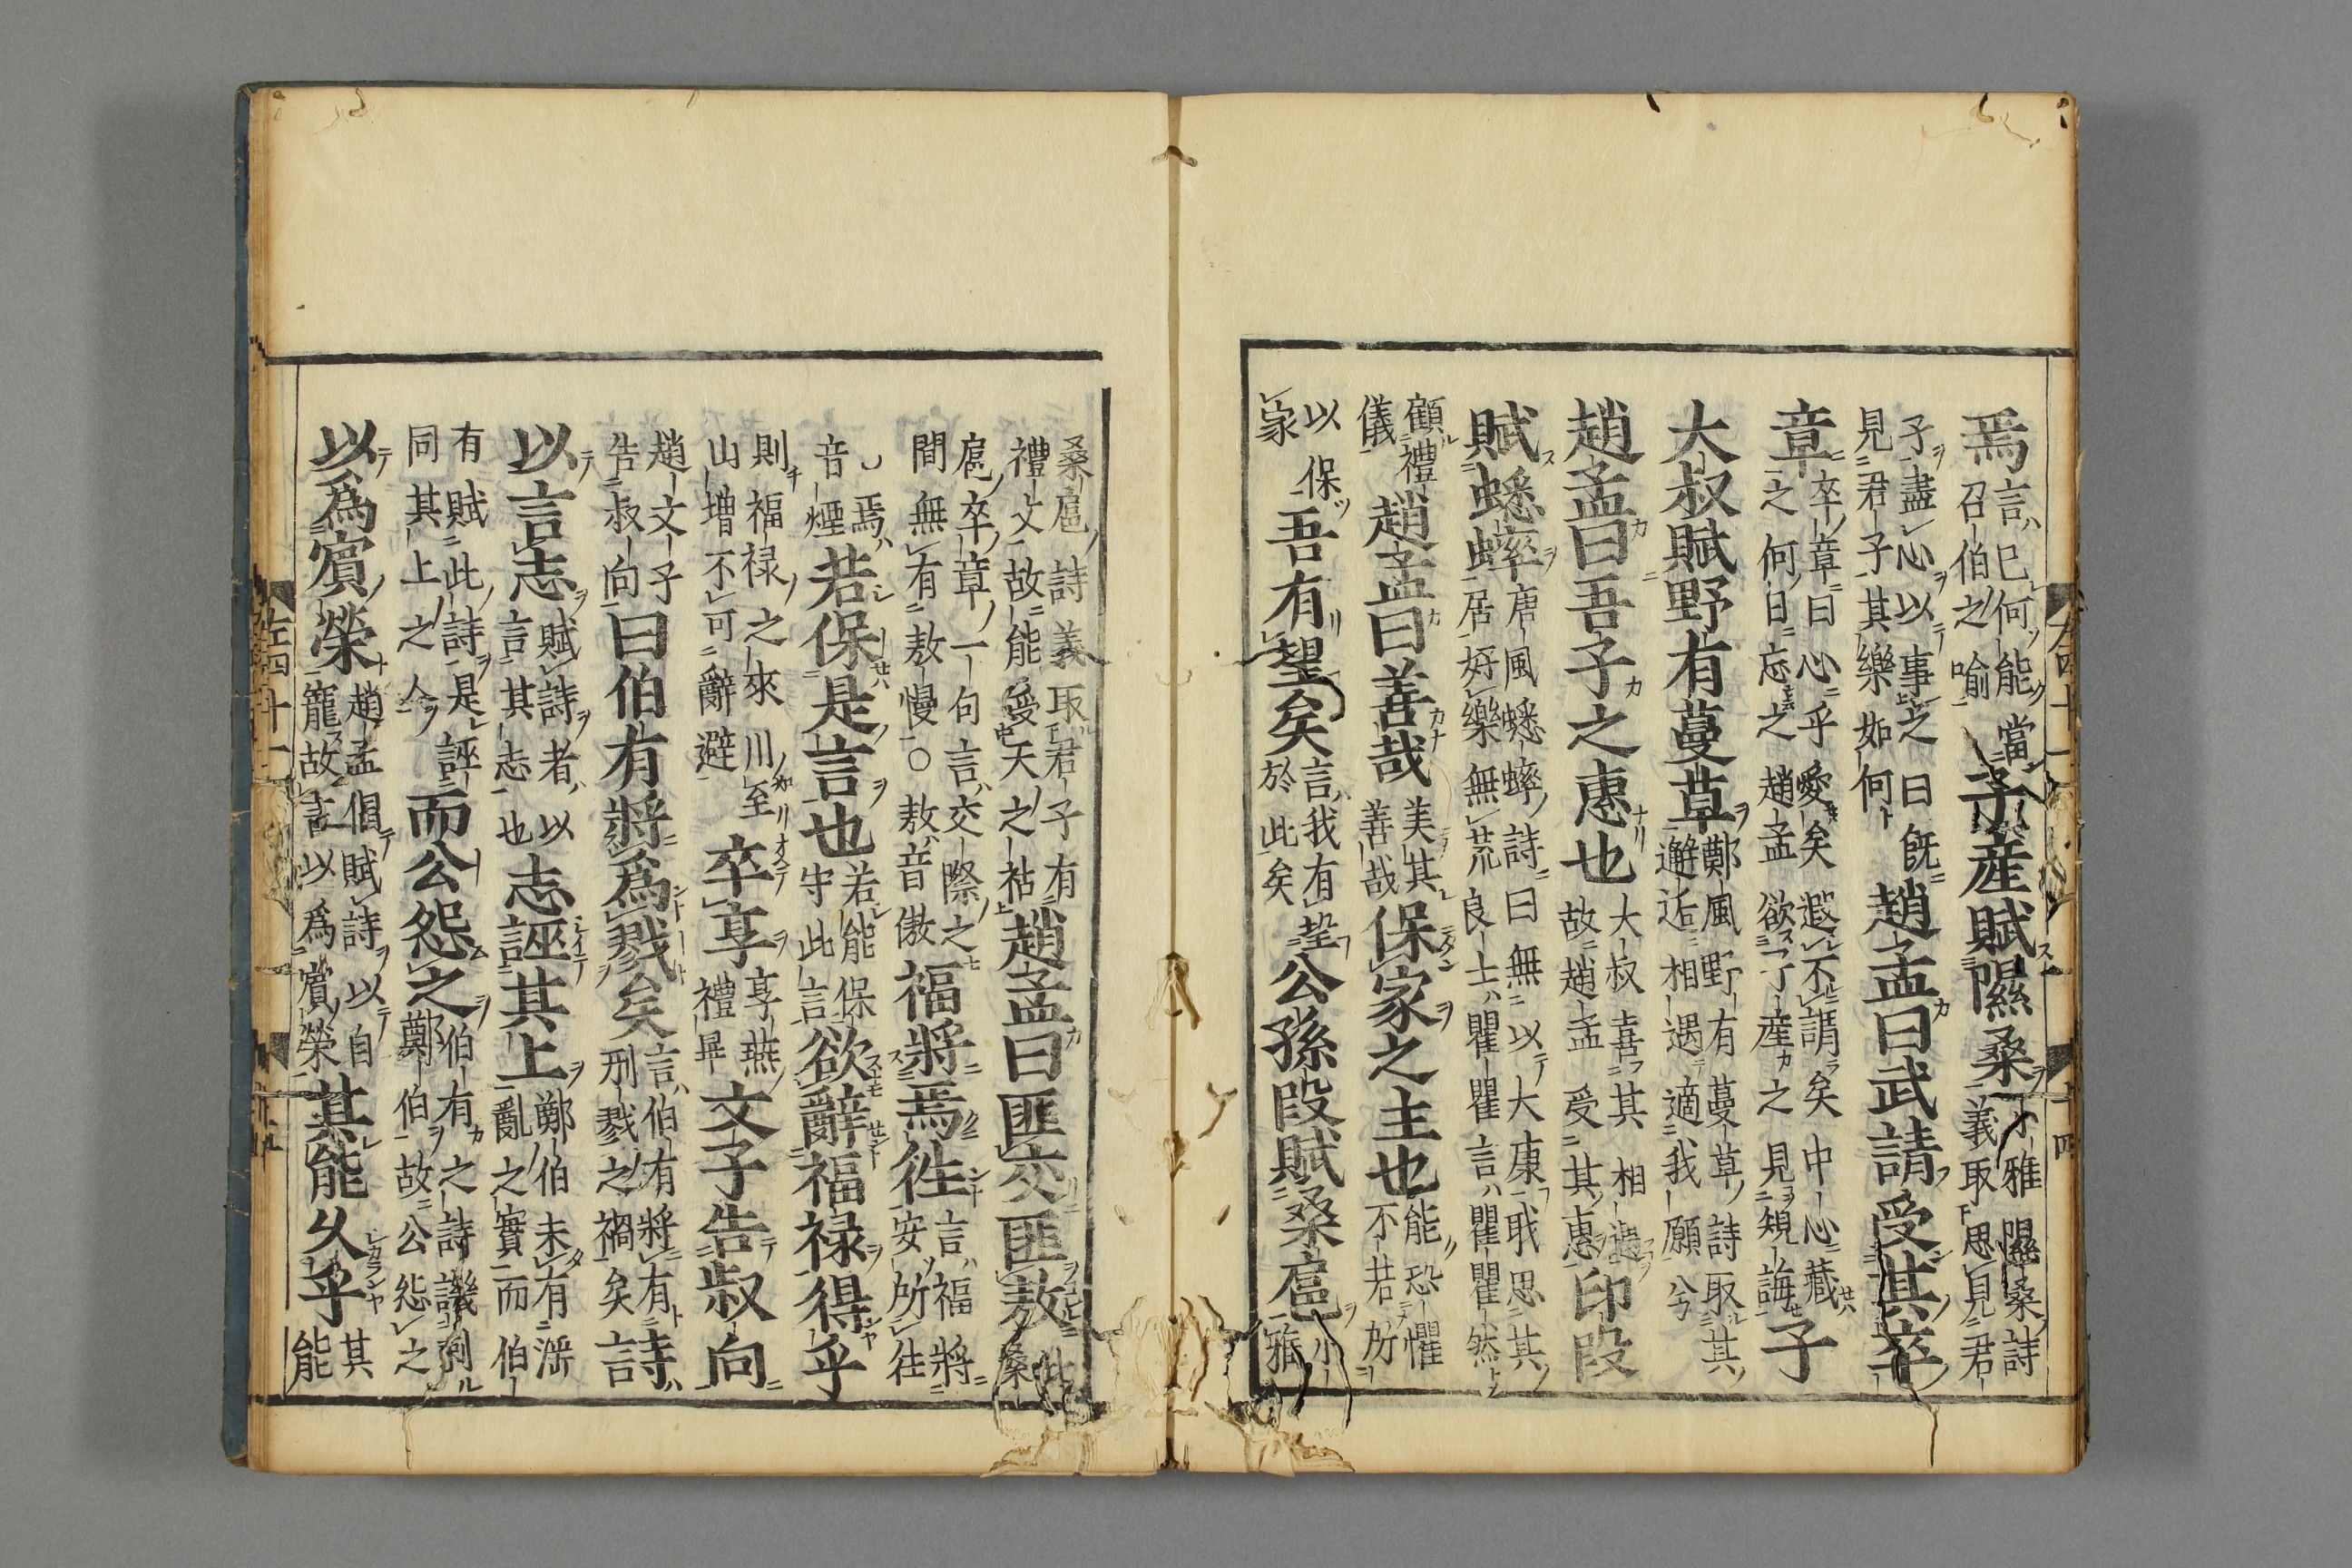 焉言已何能當召伯之喻子産賦隰桑小雅隰桑詩義取思見君
子盡心以事之曰既見君子其樂如何趙孟曰武請受其卒
章卒章曰心乎愛矣遐不謂矣中心藏之何日忘之趙孟欲子産之見規誨子
大叔賦野有蔓草鄭風野有蔓草詩取其邂逅相遇適我願兮
趙孟曰吾子之惠也大叔喜其相遇故趙孟受其惠印段
賦蟋蟀唐風蟋蟀詩曰無以大康職思其居好樂無荒良士瞿瞿言瞿瞿然
顧禮儀趙孟曰善哉美其善哉保家之主也能恐懼不荒所
以保家吾有望矣言我有望於此矣公孫段賦桑扈小雅
桑扈詩義取君子有禮文故能受天之祜趙孟曰匪交匪敖此桑
扈卒章一句言交際之間無有敖慢○敖音傲福將焉往言福將安所往
焉音煙若保是言也若能保守此言欲辭福禄得乎
則福禄之來川至山増不可辭避卒享享燕禮畢文子告叔向
趙文子告叔向曰伯有將爲戮矣言伯有將有刑戮之禍矣詩
以言志賦詩者以言其志也志誣其上鄭伯未有淫亂之實而伯
有賦此詩是誣同其上之人而公怨之伯有之詩譏刺鄭伯故公怨之
以爲賓榮趙孟倡賦詩以自寵故言以爲賓榮其能久乎其能
左四十一